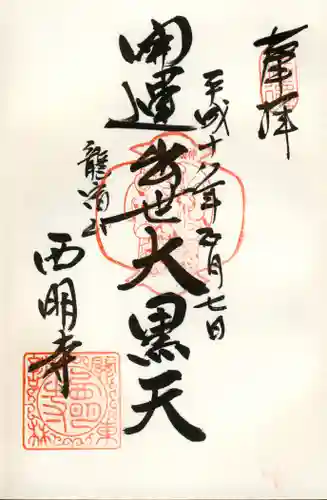 奉拝
平成十八年五月七日
開運出世大黒天
龍浦山
西明寺